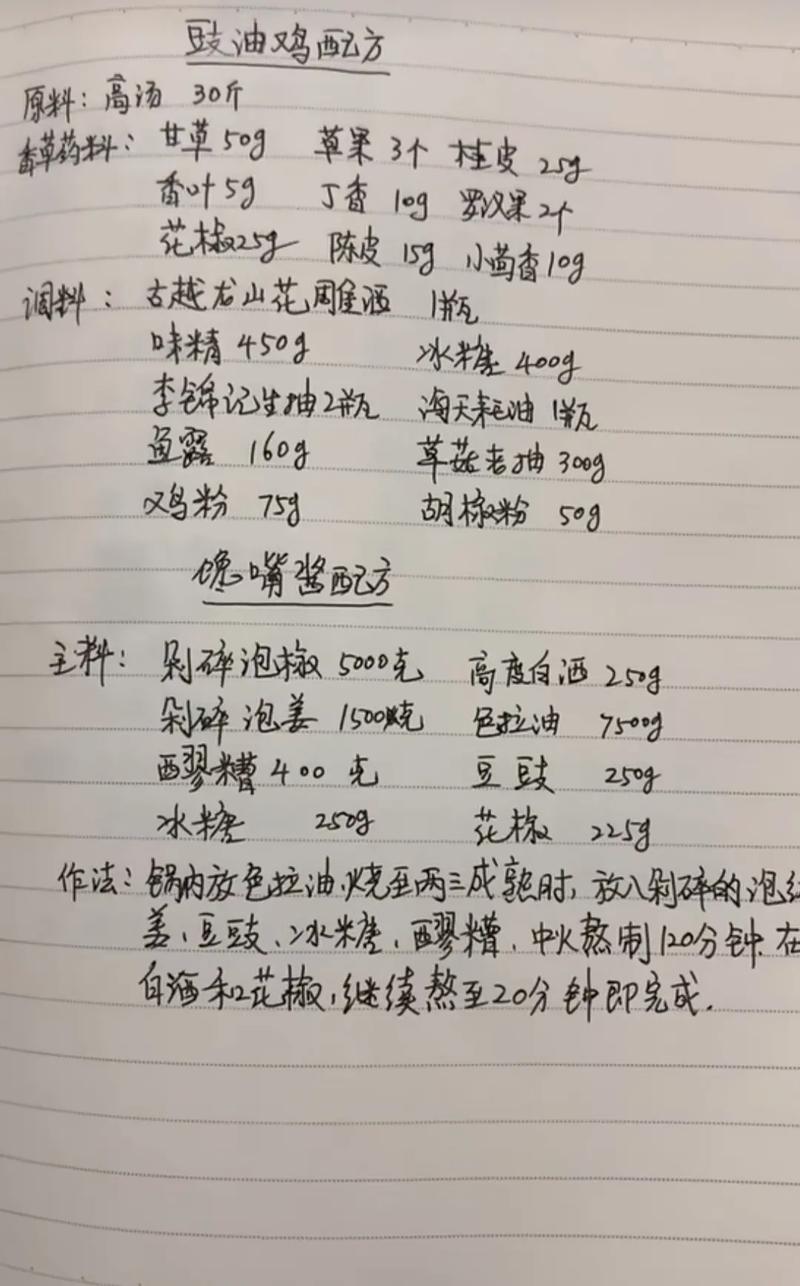 豉油鸡配方
原料：高汤 30斤
香草药料：甘草50g 草果3个 桂皮25g
香叶5g 丁香10g 罗汉果2个
花椒25g 陈皮15g 小茴香10g
调料：古越龙山花雕酒 1瓶
味精450g 冰糖400g
李锦记生抽2瓶 海天耗油1瓶
鱼露160g 草菇老抽300g
鸡粉75g 胡椒粉50g
馋嘴酱配方
主料：剁碎泡椒5000克 高度白酒250g
剁碎泡姜1500克 色拉油7500g
醪糟400克 豆豉250g
冰糖250g 花椒225g
作法：锅内放色拉油，烧至两三成熟时，放入剁碎的泡
姜、豆豉、冰糖、醪糟，中火熬制120分钟.在
白酒和花椒，继续熬至20分钟即完成.